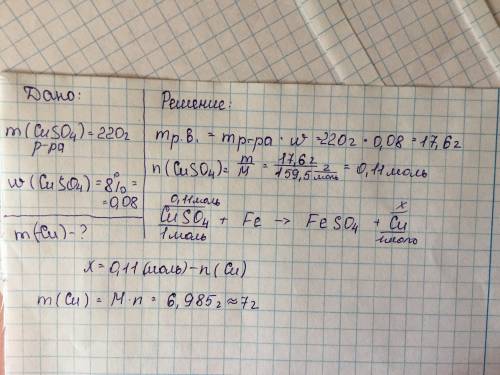 Дано:
m(CuSO4)=220г
р-ра
ω(CuSO4)=8%=
=0,08
m(Cu)-?
Решение:
mр.в. = mр-ра · ω =220г · 0,08 = 17,6г
n(CuSO4)= m/M = 17,6г/159,5 г/моль = 0,11 моль
0,11моль x
CuSO4 + Fe → FeSO4 + Cu
1моль 1моль
x=0,11(моль)-n(Cu)
m(Cu) = M·n = 6,985г≈7г